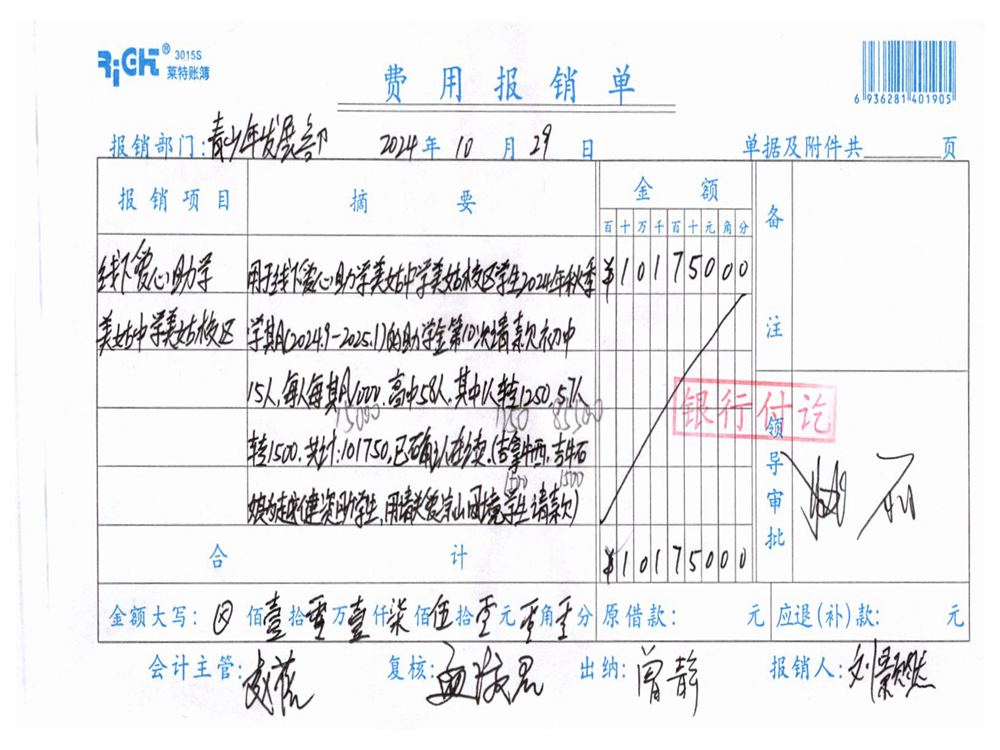 RiGHT® 3015S
莱特账簿
费用报销单
6 936281 401905
报销部门:青少年发展部 2024年10月29日 单据及附件共____页
报销项目 摘要 金额 备注
百十万千百十元角分
线下爱心助学 用于线下爱心助学美姑中学美姑校区学生2024年秋季 ¥10175000
美姑中学美姑校区 学期(2024.9-2025.1)的助学金第10次请款初中
15人,每人每期1000,高中58人,其中1人转1250,57人
15000 1250 85500
转1500.共计:101750,已确认在读.(吉拿牛西,吉牛石
1500 1500
为越健资助学生,用请款)
银行付讫
领导审批
合计 ¥10175000
金额大写:⊗佰壹拾零万壹仟柒佰伍拾零元零角零分 原借款: 元 应退(补)款: 元
会计主管: 复核: 出纳:曾静 报销人:刘